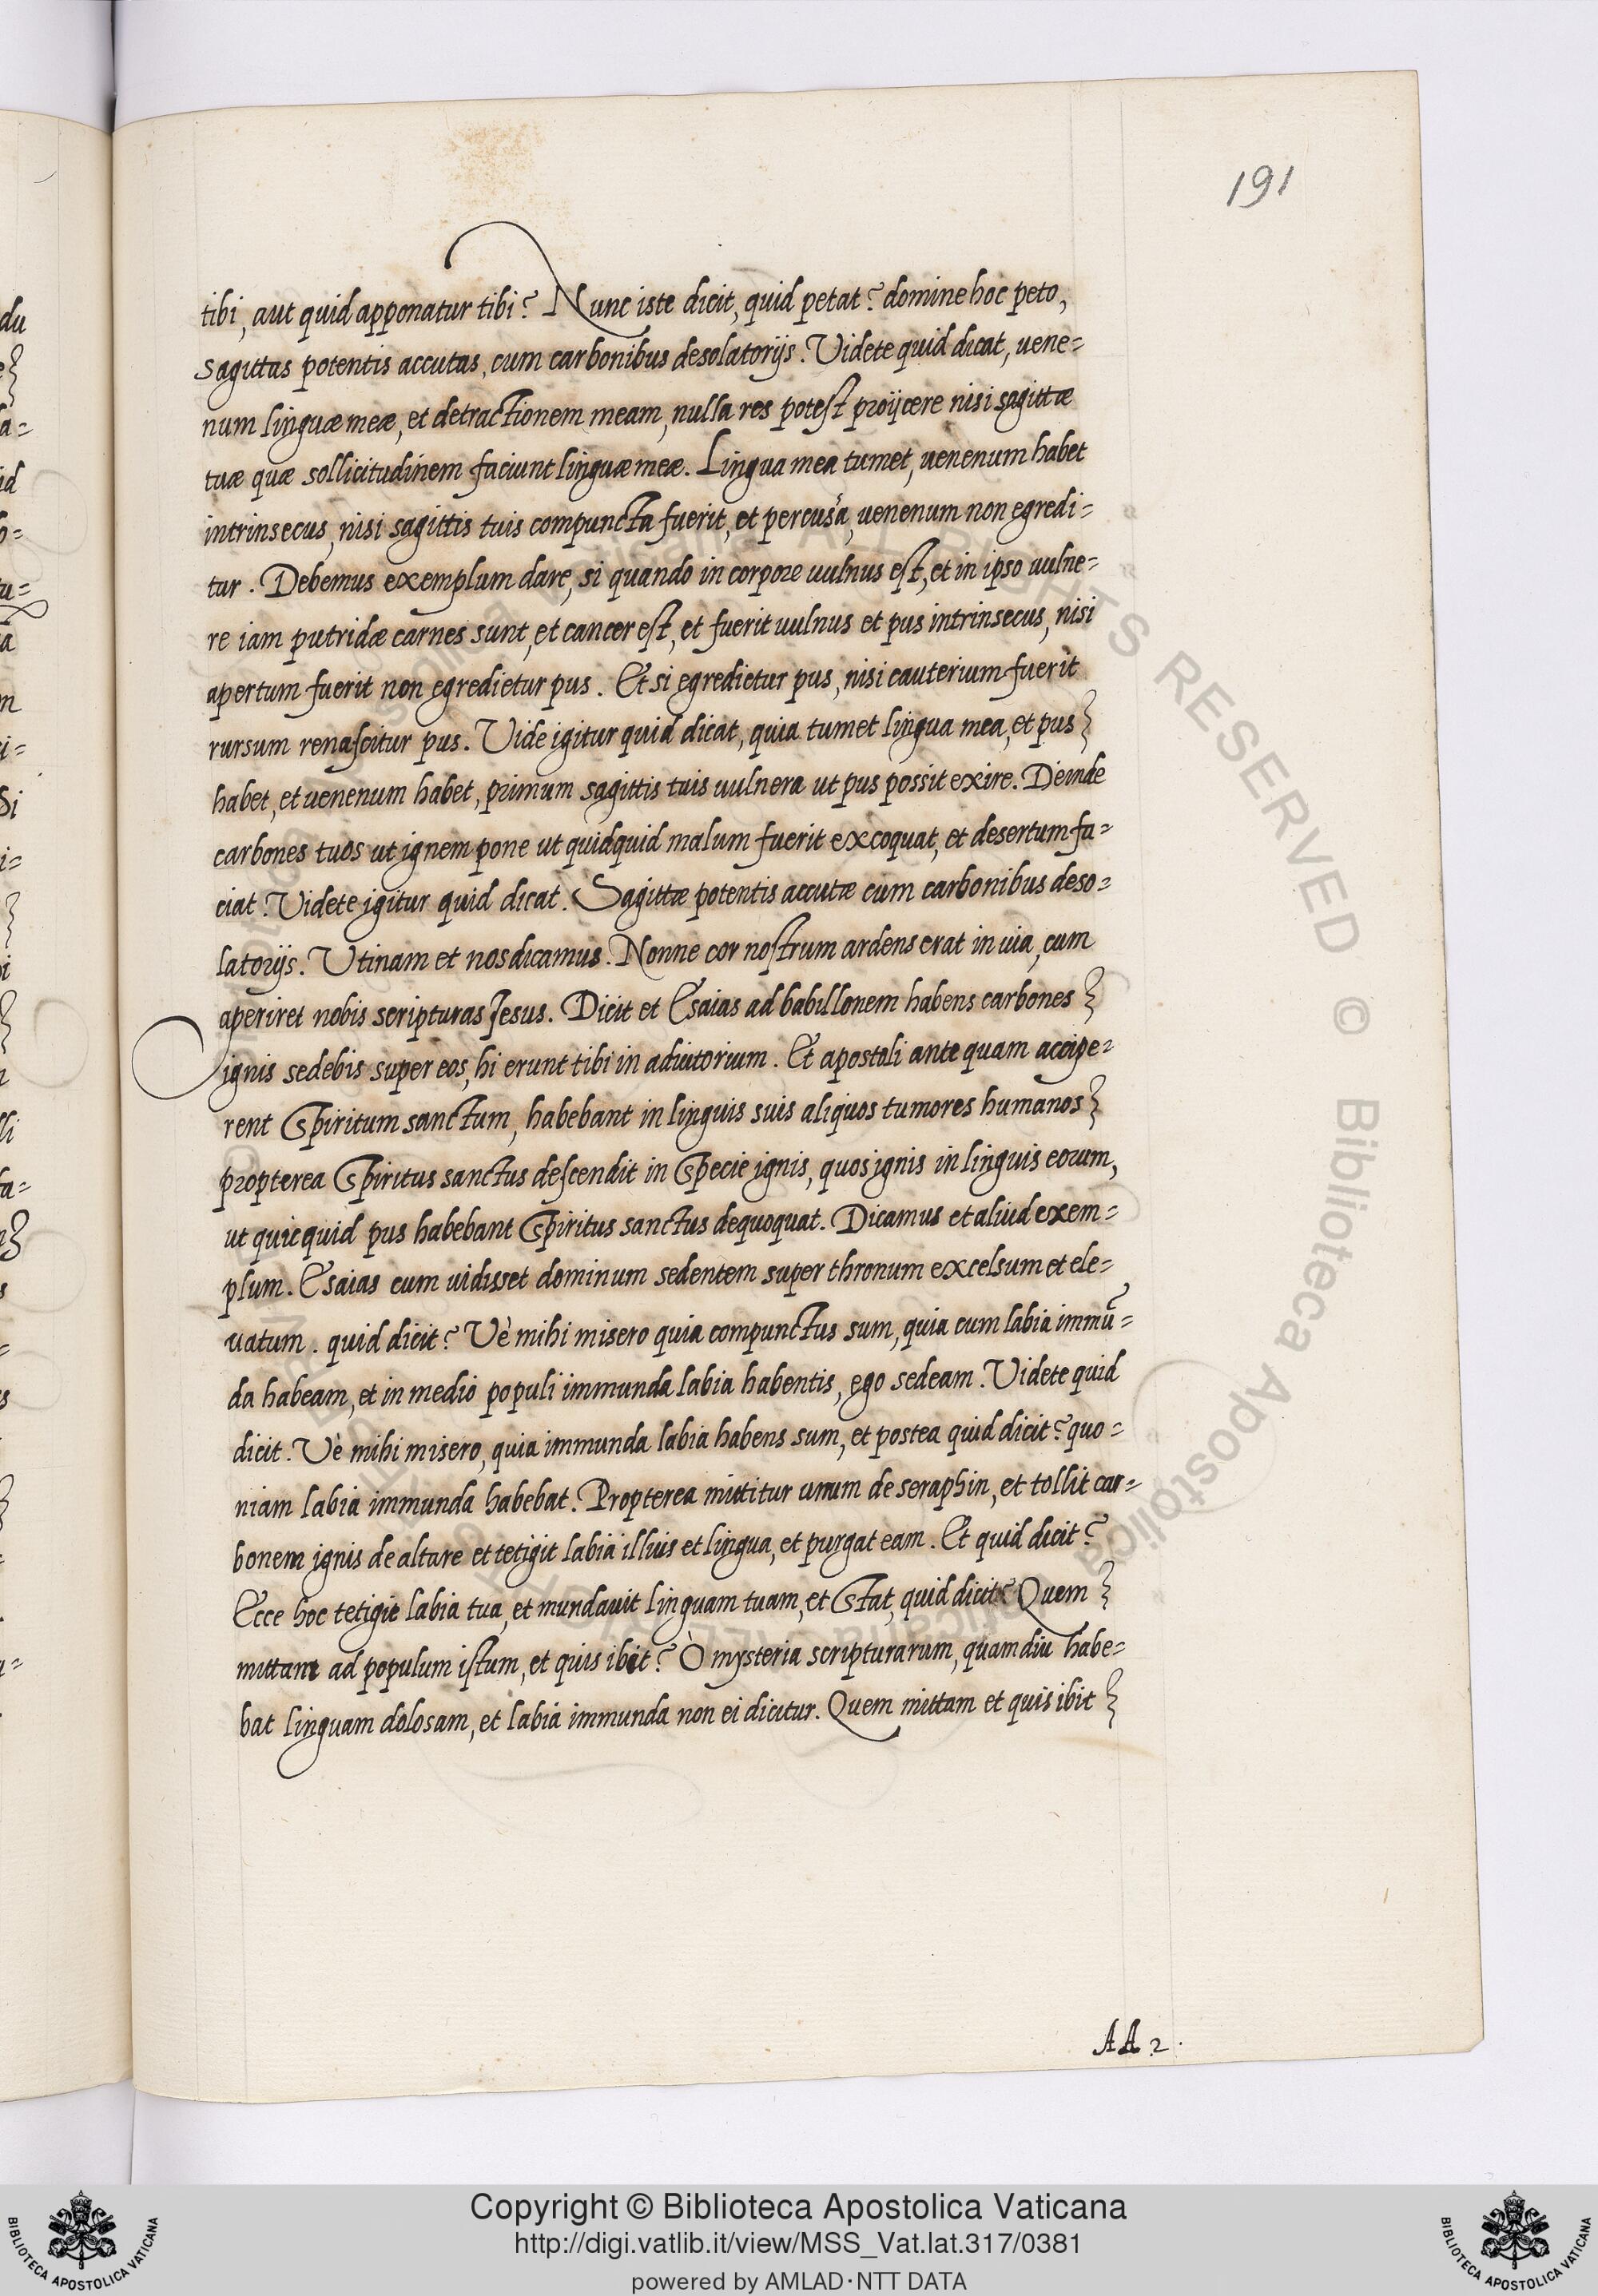 191
tibi, aut quid apponatur tibi? Nunc iste dicit, quid petat? domine hoc peto,
sagittas potentis accutas, cum carbonibus desolatorijs. Videte quid dicat, uene=
num linguæ meæ, et detractionem meam, nulla res potest proijcere nisi sagittæ
tuæ quæ sollicitudinem faciunt linguæ meæ. Lingua mea tumet, uenenum habet
intrinsecus, nisi sagittis tuis compuncta fuerit, et percusa, uenenum non egredi=
tur. Debemus exemplum dare, si quando in corpore uulnus est, et in ipso uulne=
re iam putridæ carnes sunt, et cancer est, et fuerit uulnus et pus intrinsecus, nisi
apertum fuerit non egredietur pus. Et si egredietur pus, nisi cauterium fuerit
rursum renascitur pus. Vide igitur quid dicat, quia tumet lingua mea, et pus
habet, et uenenum habet, primum sagittis tuis uulnera ut pus possit exire. Deinde
carbones tuos ut ignem pone ut quidquid malum fuerit excoquat, et desertum fa=
ciat. Videte igitur quid dicat. Sagittæ potentis accutæ cum carbonibus deso=
latorijs. Vtinam et nos dicamus. Nonne cor nostrum ardens erat in uia, cum
aperiret nobis scripturas Jesus. Dicit et Esaias ad babillonem habens carbones
ignis sedebis super eos, hi erunt tibi in adiutorium. Et apostoli ante quam accipe=
rent Spiritum sanctum, habebant in linguis suis aliquos tumores humanos
propterea Spiritus sanctus descendit in Specie ignis, quos ignis in linguis eorum,
ut quicquid pus habebant Spiritus sanctus dequoquat. Dicamus et aliud exem=
plum. Esaias cum uidisset dominum sedentem super thronum excelsum et ele=
uatum. quid dicit? Vè mihi misero quia compunctus sum, quia cum labia immū=
da habeam, et in medio populi immunda labia habentis, ego sedeam. Videte quid
dicit. Vè mihi misero, quia immunda labia habens sum, et postea quid dicit? quo=
niam labia immunda habebat. Propterea mittitur unum de seraphin, et tollit car=
bonem ignis de altare et tetigit labia illius et lingua, et purgat eam. Et quid dicit?
Ecce hoc tetigit labia tua, et mundauit linguam tuam, et Stat, quid dicit? Quem
mittam ad populum istum, et quis ibit? Ò mysteria scripturarum, quamdiu habe=
bat linguam dolosam, et labia immunda non ei dicitur. Quem mittam et quis ibit
AA 2.
Copyright © Biblioteca Apostolica Vaticana
http://digi.vatlib.it/view/MSS_Vat.lat.317/0381
powered by AMLAD·NTT DATA
BIBLIOTECA APOSTOLICA VATICANA
BIBLIOTECA APOSTOLICA VATICANA